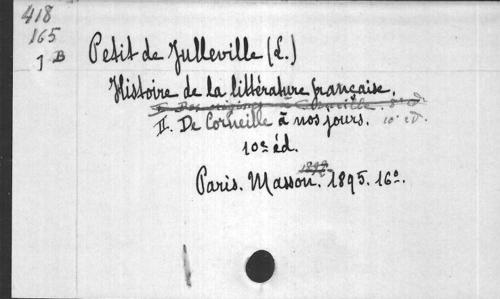 418
165
1 B
Petit de Julleville (L.)
Histoire de la littérature française.
I. Des origines à Corneille. éd.
II. De Corneille à nos jours. 10e éd.
10e éd.
Paris. Masson. 1895. 16o.